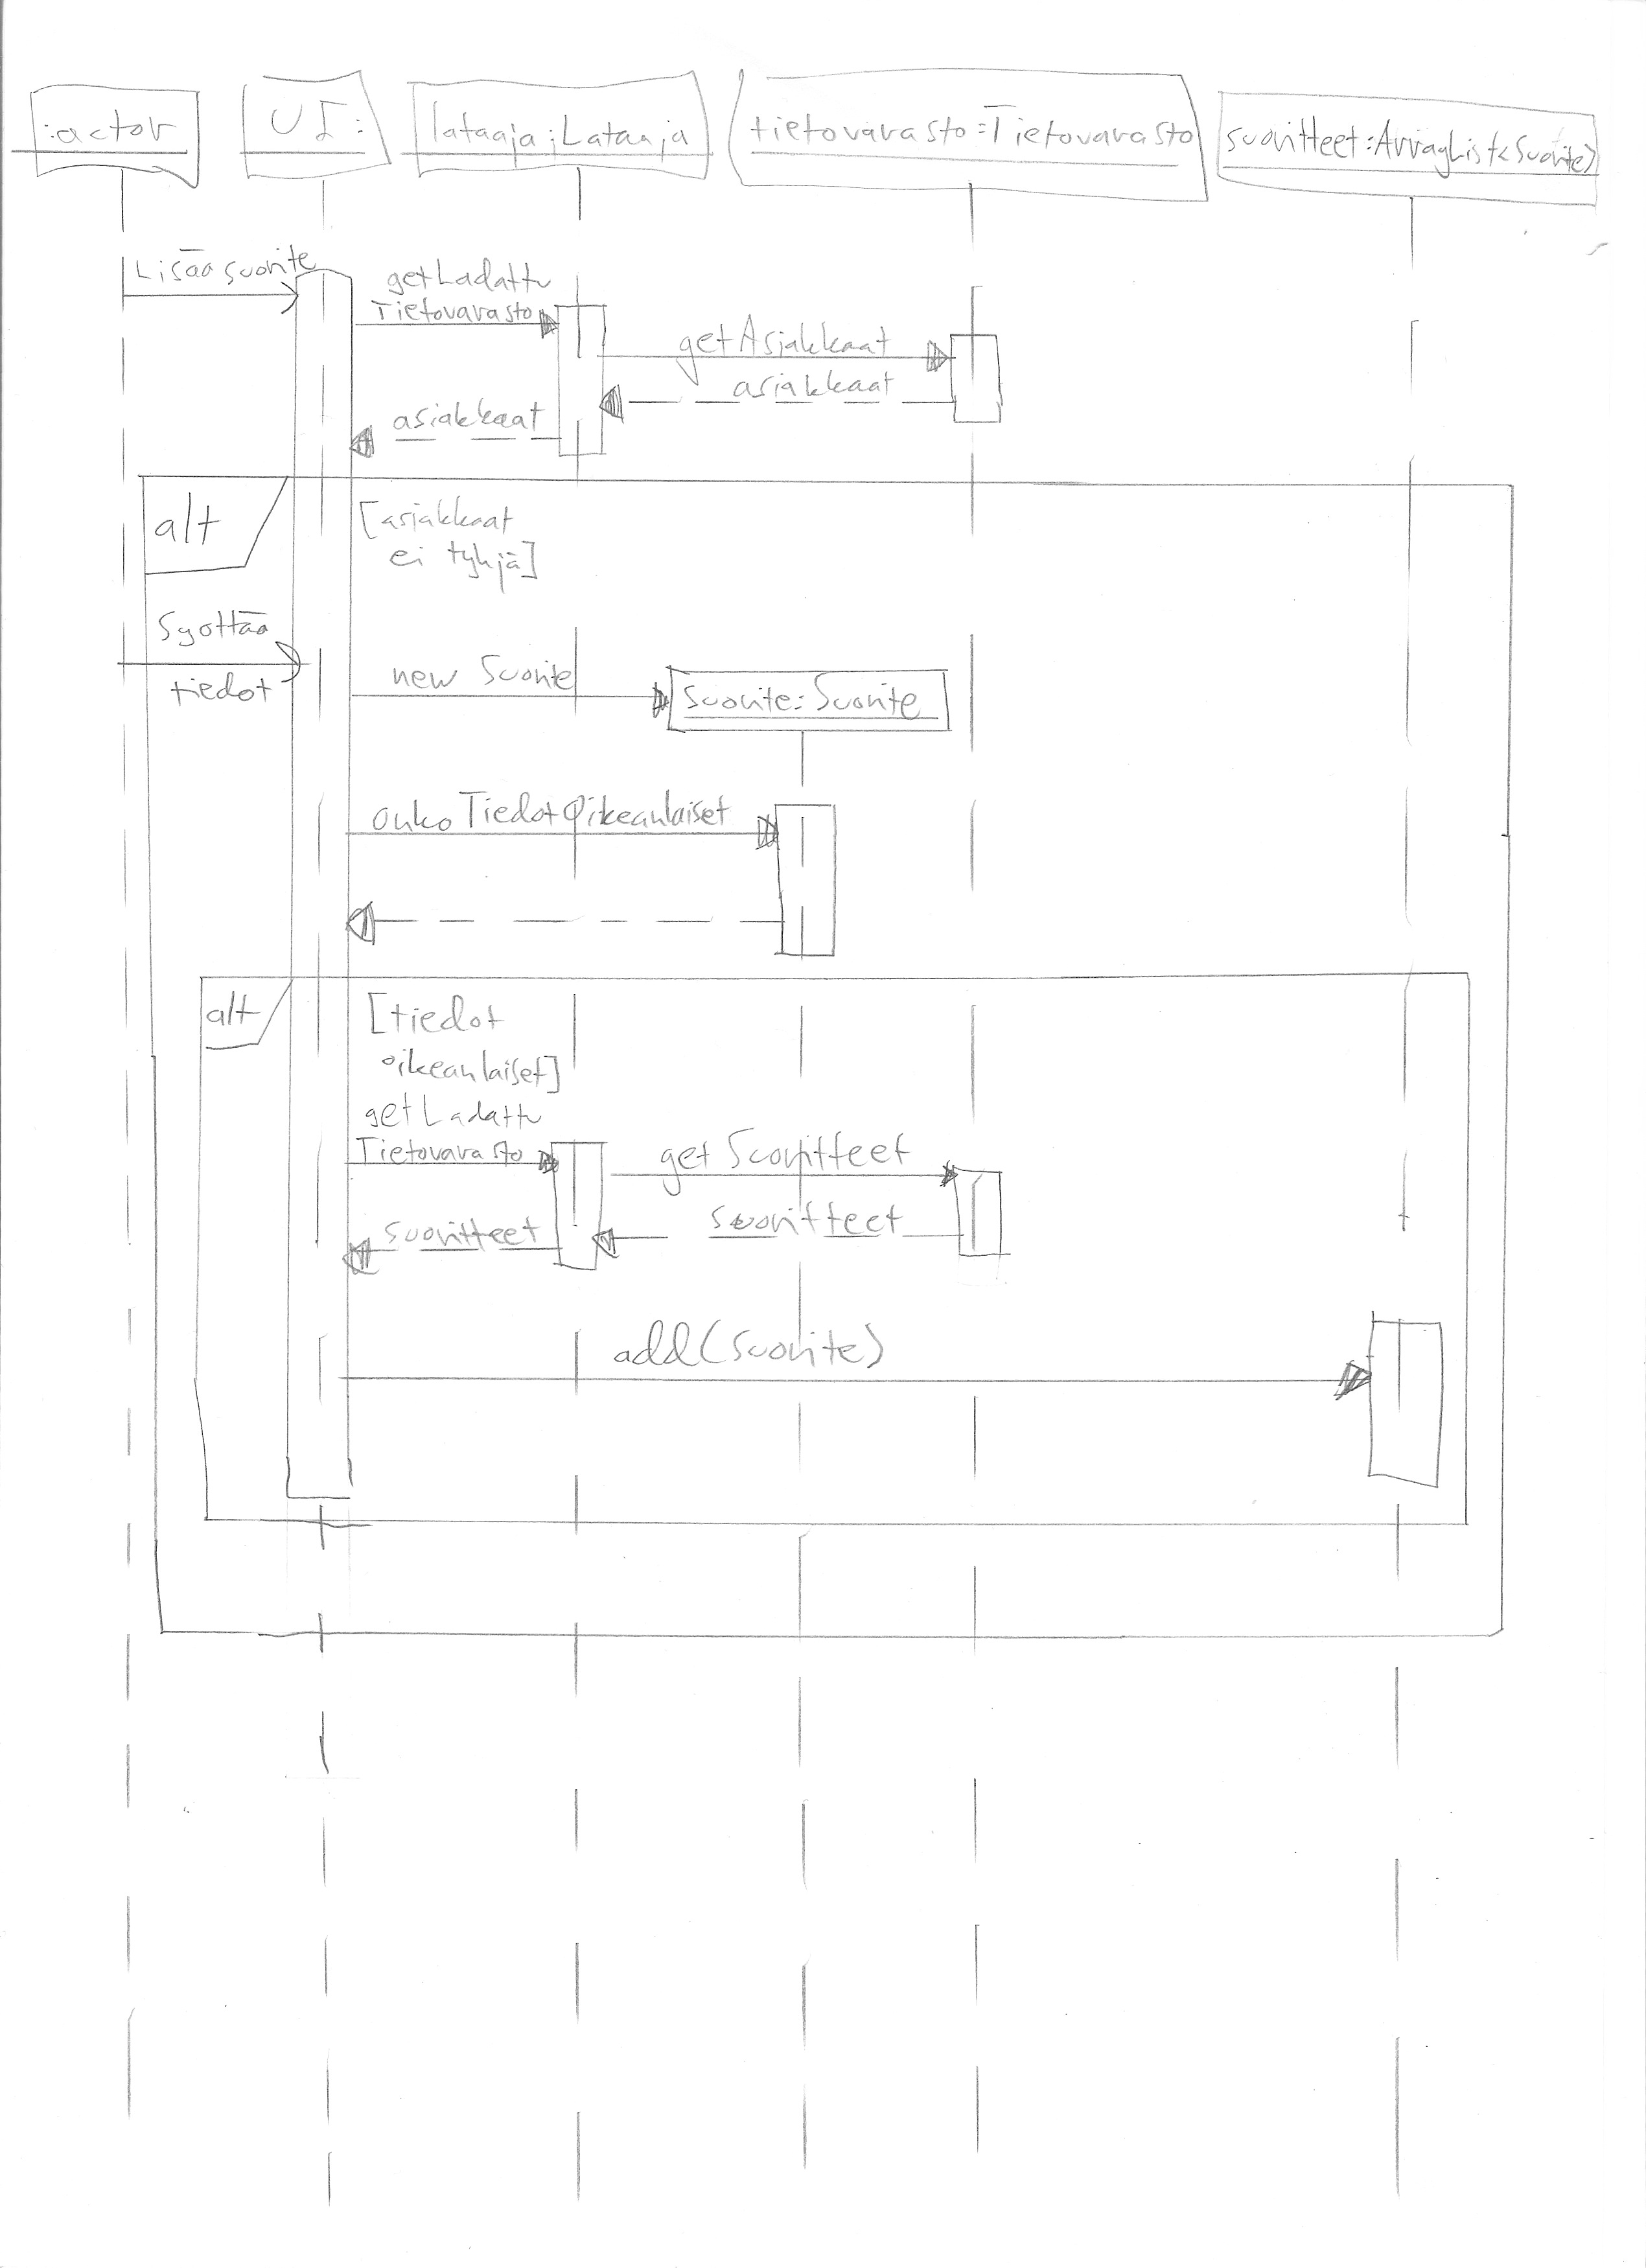 :actor
UI:
lataaja:Lataaja
tietovarasto:Tietovarasto
suoritteet:ArrayList<Suorite>
Lisää suorite
getLadattu
Tietovarasto
getAsiakkaat
asiakkaat
asiakkaat
alt
[asiakkaat
ei tyhjä]
Syöttää
tiedot
new Suorite
suorite:Suorite
onkoTiedotOikeanlaiset
alt
[tiedot
oikeanlaiset]
getLadattu
Tietovarasto
getSuoritteet
suoritteet
suoritteet
add(suorite)